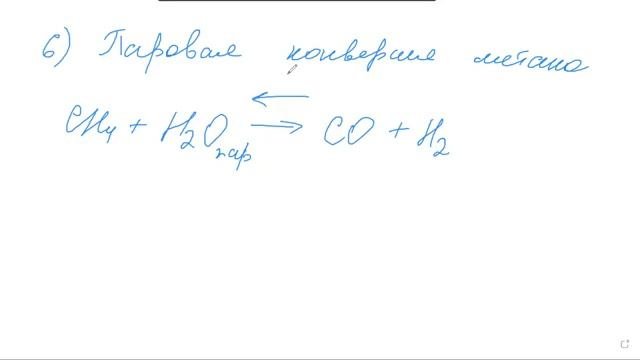 6) Паровая конверсия метана
CH₄ + H₂O пар ⇄ CO + H₂